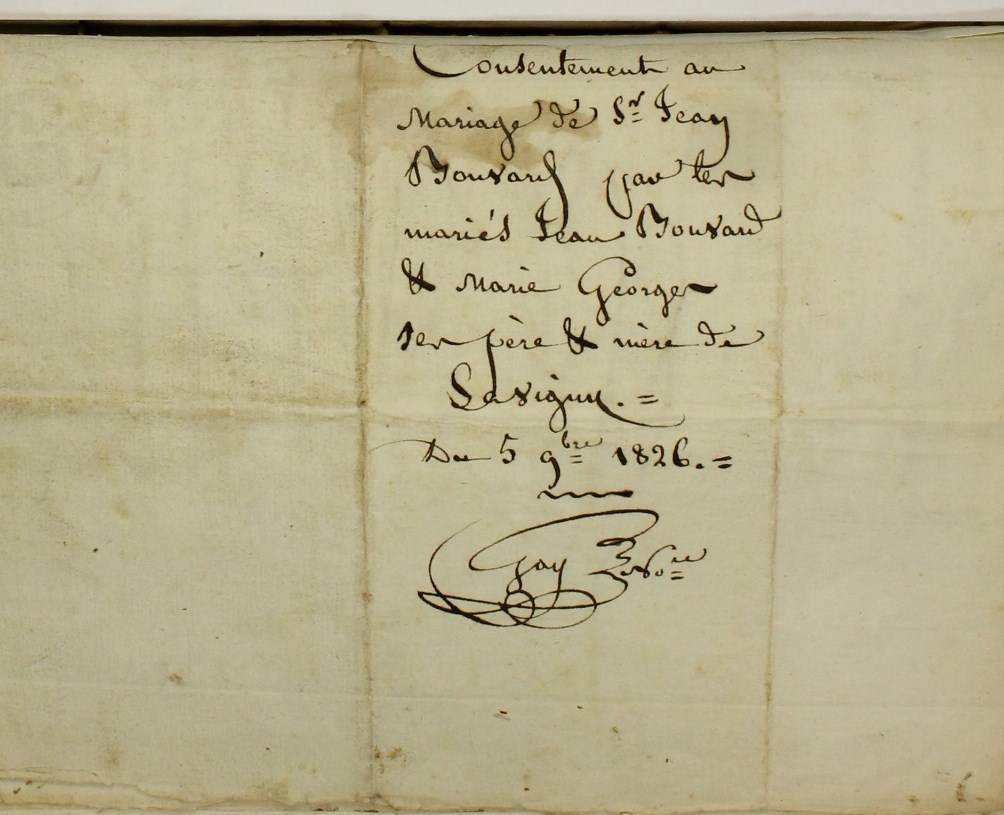 Consentement au
Mariage de Sr. Jean
Bouvard par les
mariés Jean Bouvard
& Marie Georges
ses père & mère de
Savigny. =
Du 5 9bre 1826. =
Gay